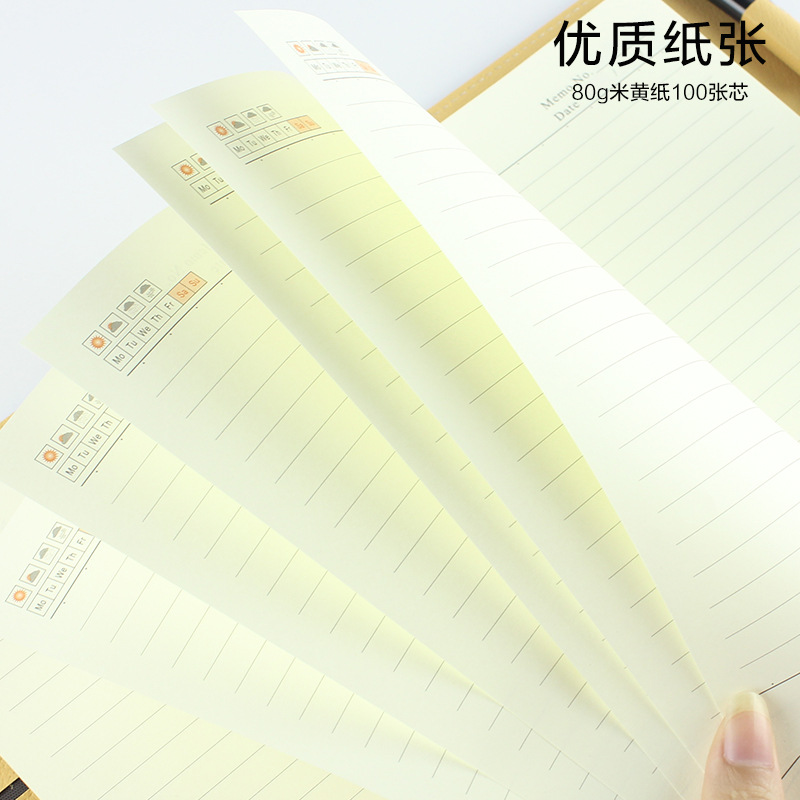 优质纸张
80g米黄纸100张芯
Memo No.
Date
Mo Tu We Th Fr Sa Su
Mo Tu
Mo Tu We Th Fr Sa Su
Mo Tu We Th
Mo Tu We Th Fr